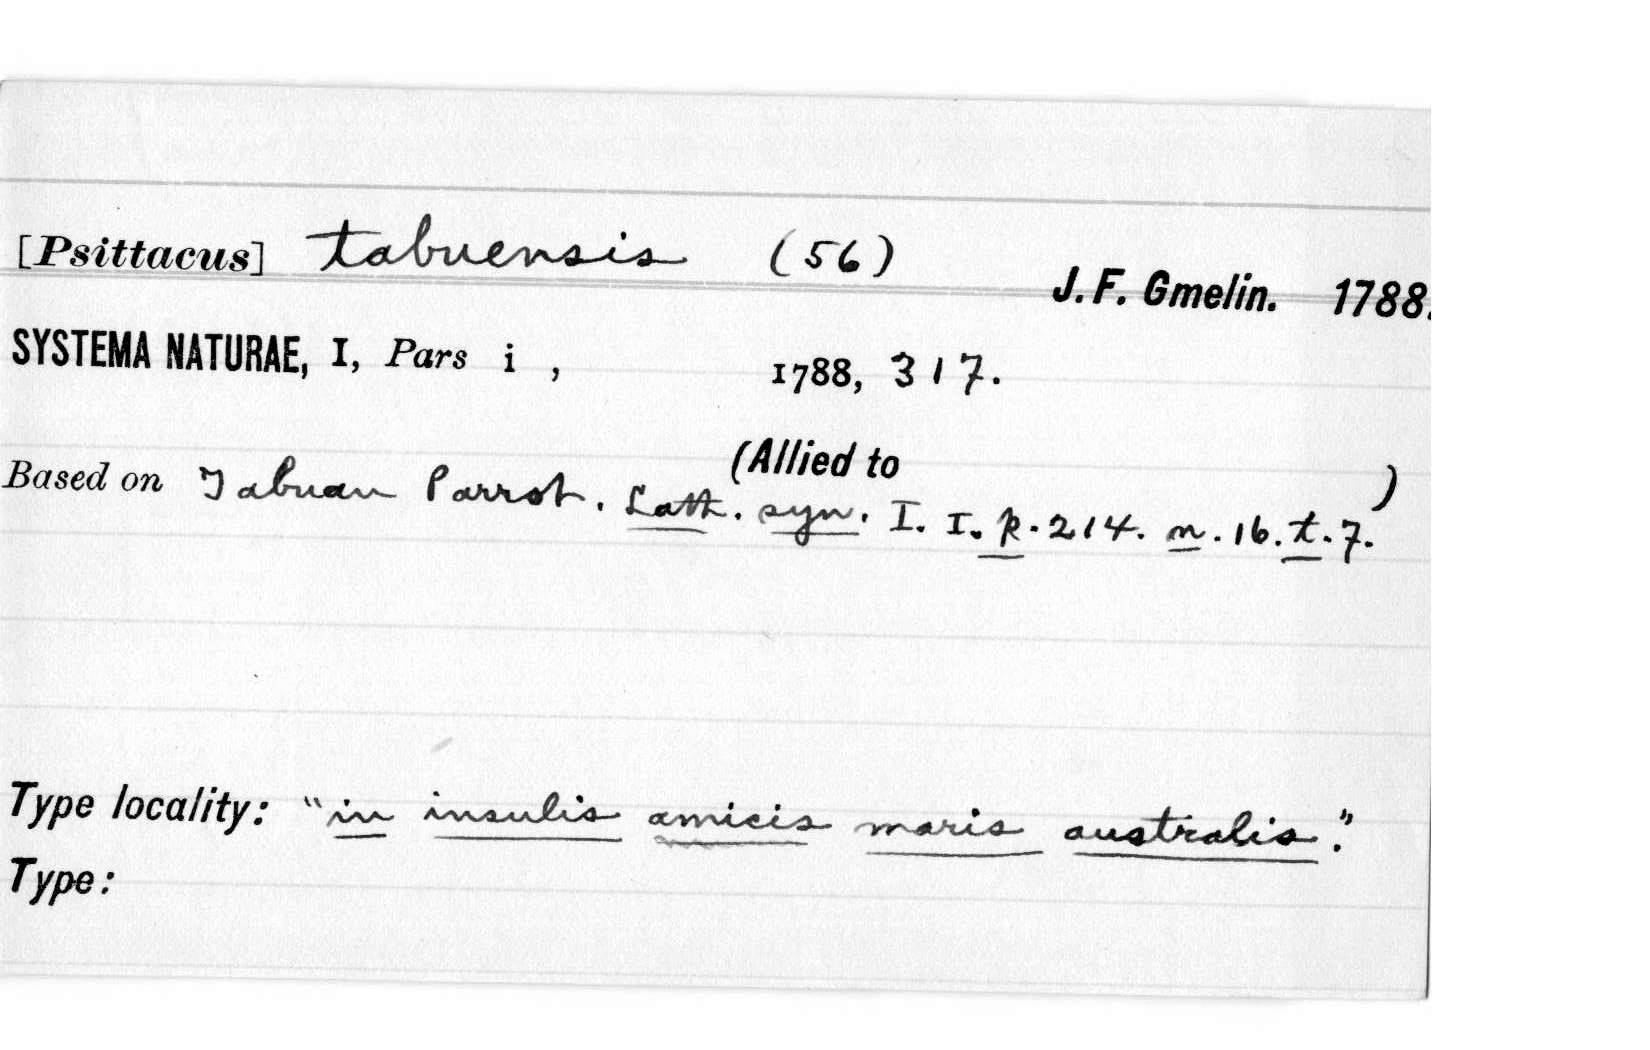 [Psittacus] tabuensis (56)
J. F. Gmelin. 1788.
SYSTEMA NATURAE, I, Pars i , 1788, 317.
(Allied to )
Based on Tabuan Parrot. Lath. syn. I. I. p. 214. n. 16. t. 7.
Type locality: "in insulis amicis maris australis."
Type: